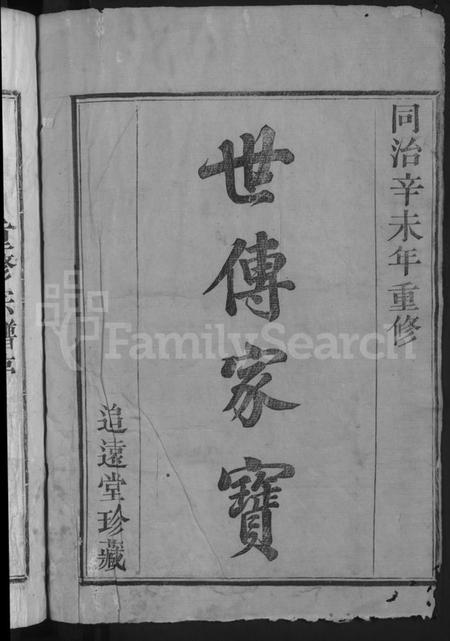 同治辛未年重修
世傳家寶
追遠堂珍藏
FamilySearch